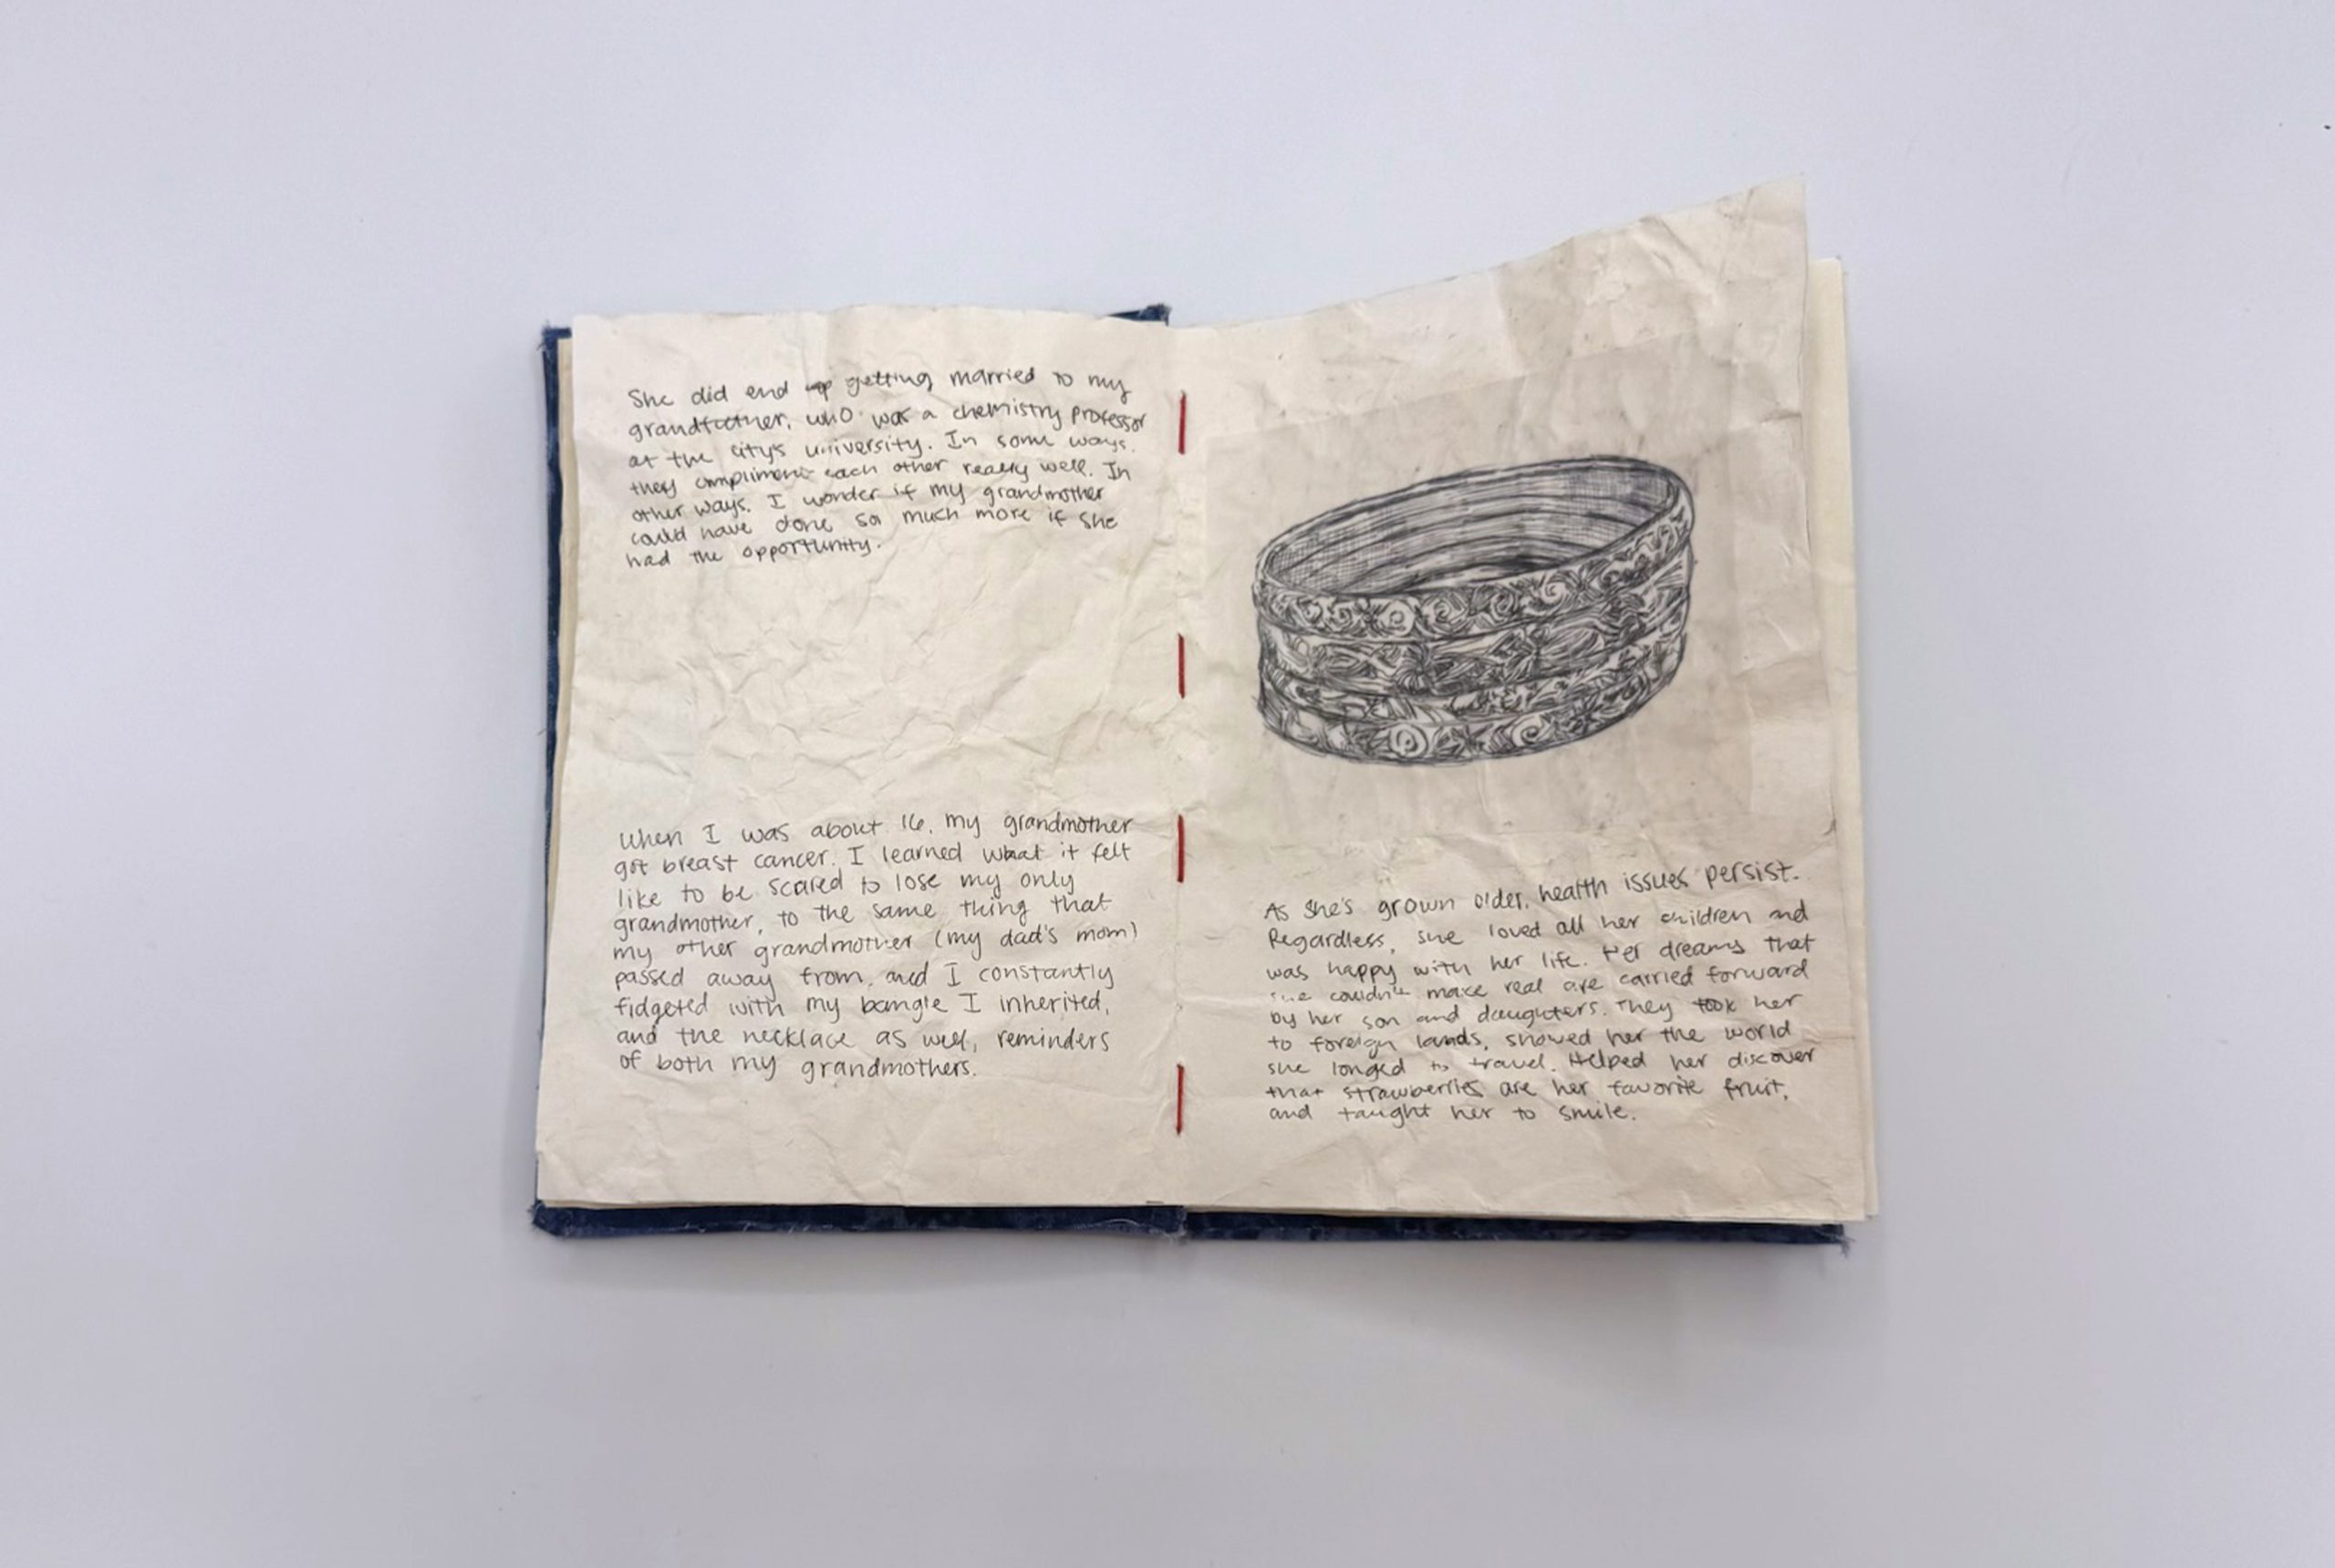 She did end up getting married to my
grandfather, who was a chemistry professor
at the city's university. In some ways,
they compliment each other really well. In
other ways, I wonder if my grandmother
could have done so much more if she
had the opportunity.
When I was about 16, my grandmother
got breast cancer. I learned what it felt
like to be scared to lose my only
grandmother, to the same thing that
my other grandmother (my dad's mom)
passed away from, and I constantly
fidgeted with my bangle I inherited,
and the necklace as well, reminders
of both my grandmothers.
As she's grown older, health issues persist.
Regardless, she loved all her children and
was happy with her life. Her dreams that
she couldn't make real are carried forward
by her son and daughters. They took her
to foreign lands, showed her the world
she longed to travel. Helped her discover
that strawberries are her favorite fruit,
and taught her to smile.